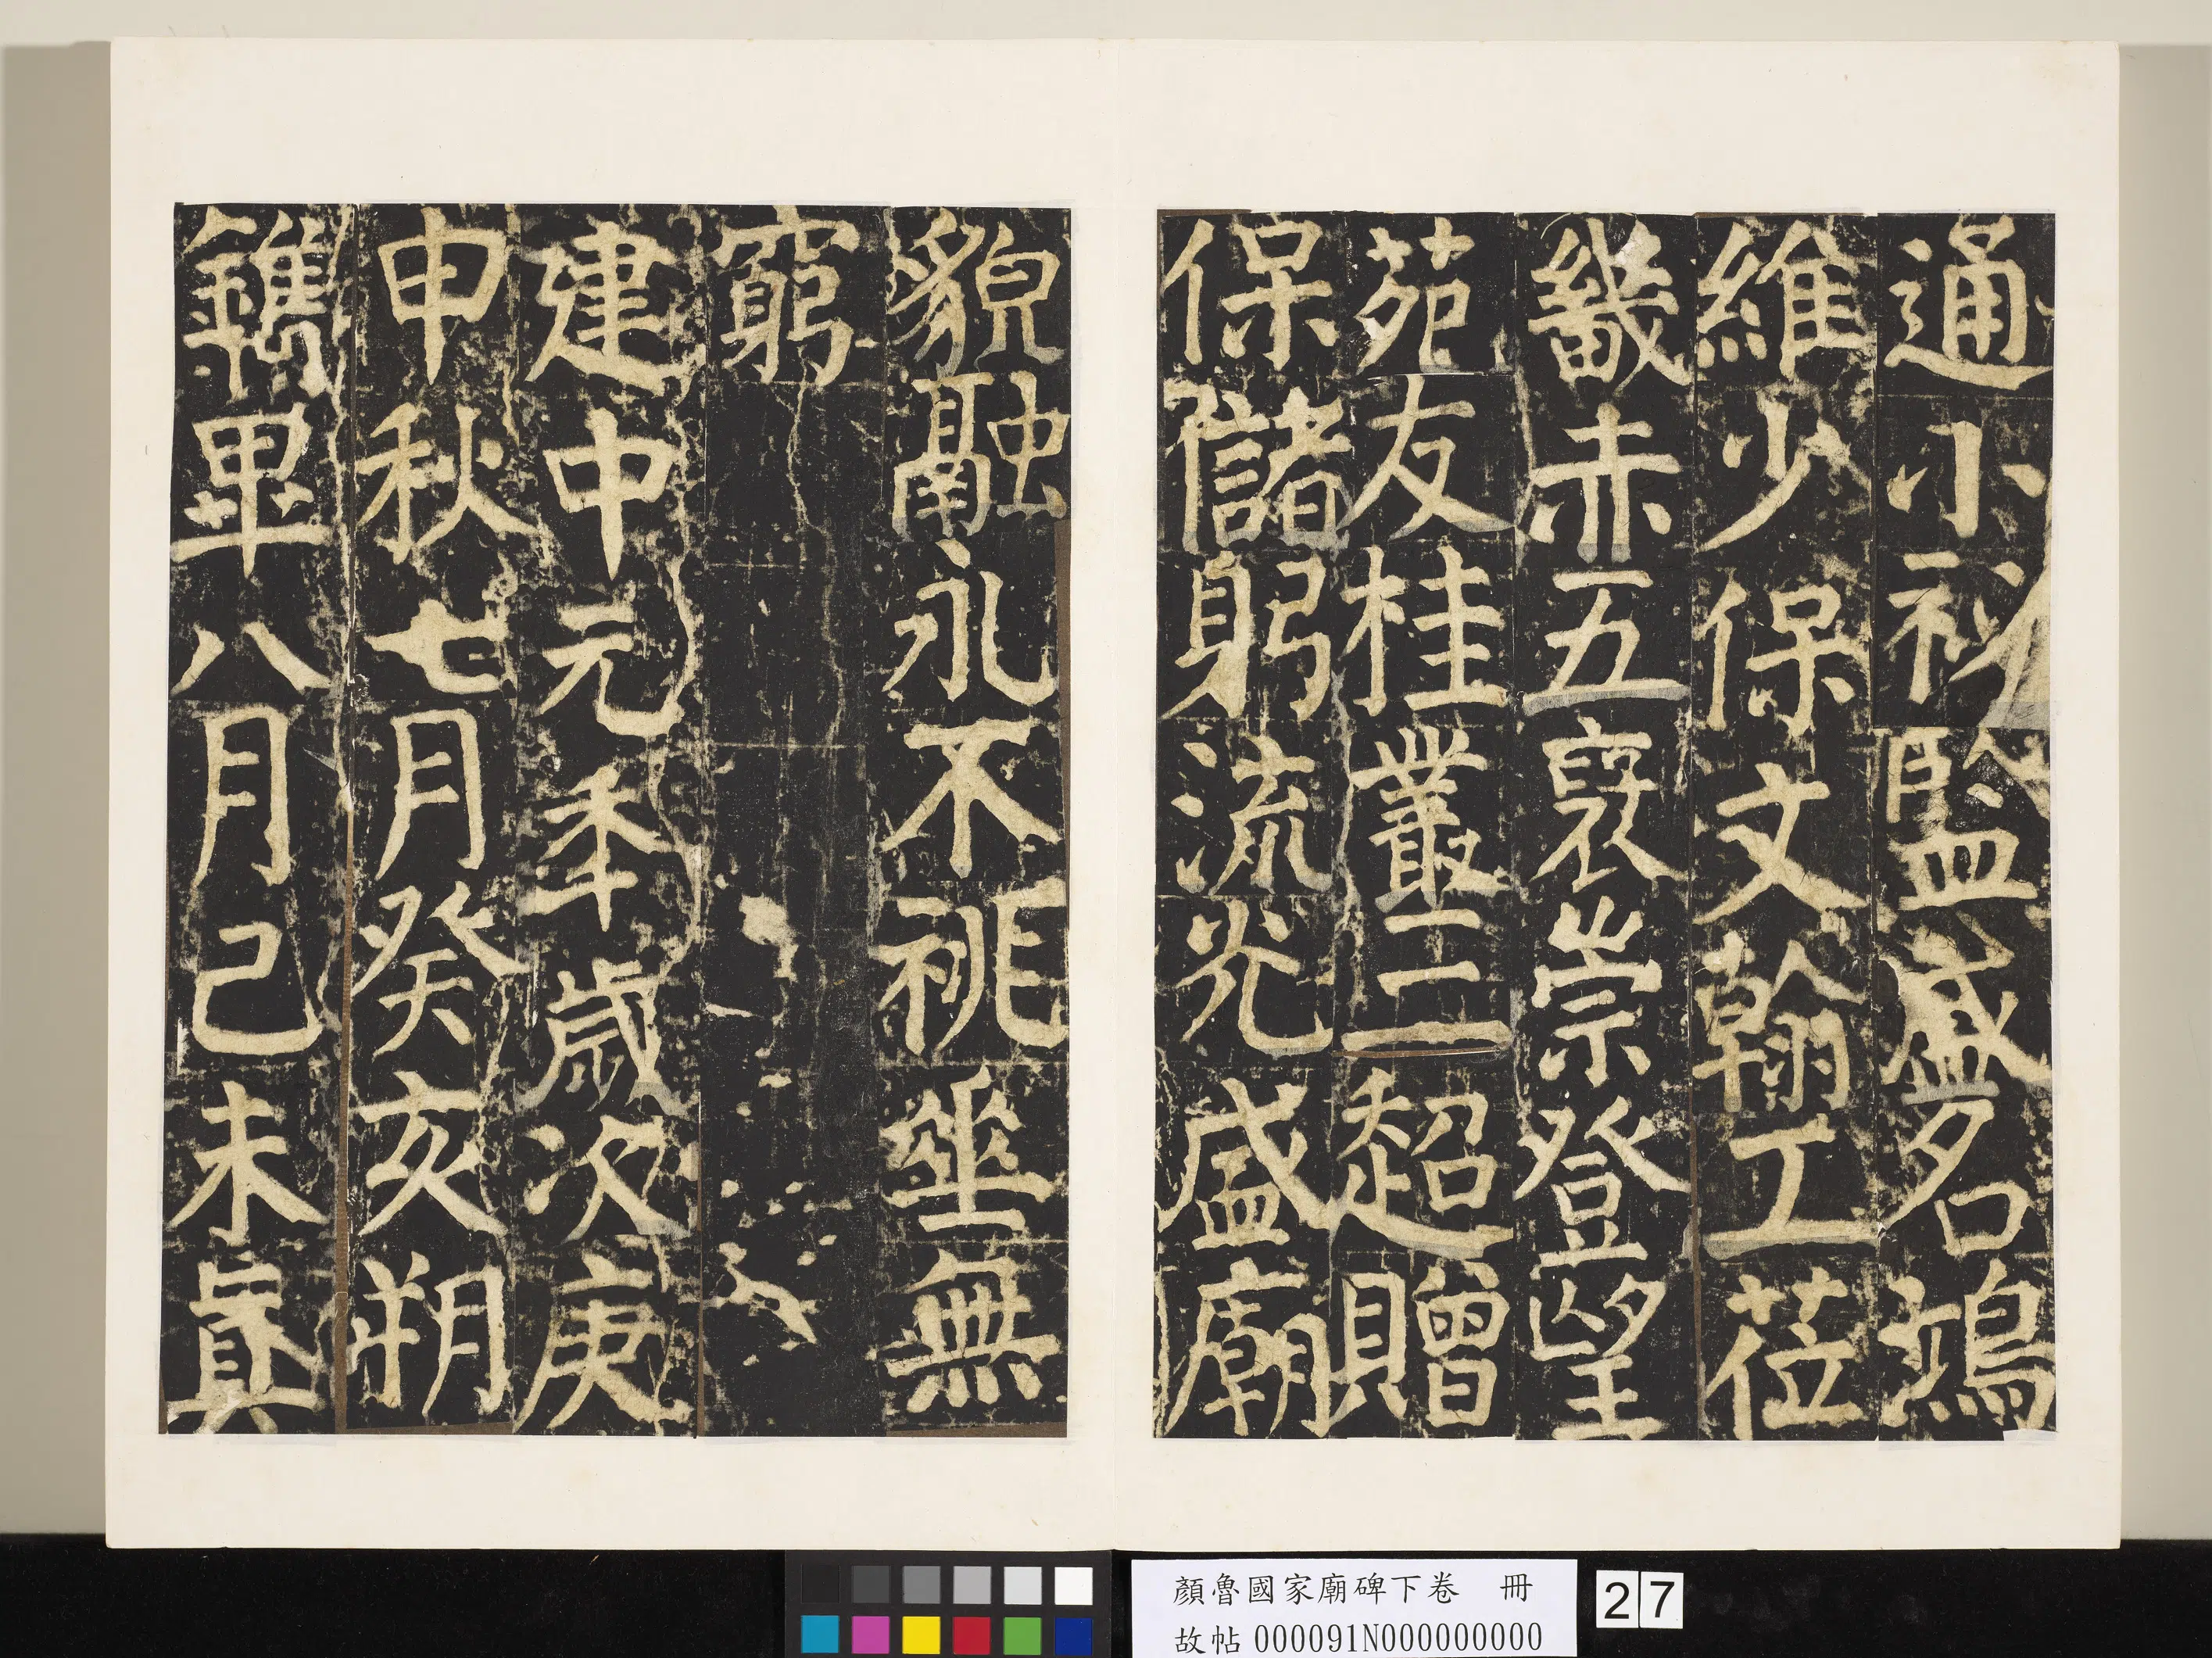 通小秘監盛名鴻
維少保文翰工莅
畿赤五襄崇登望
苑友桂叢三二超贈
保儲躬流光盛廟
貌融永不祧垂無
窮
建中元年歲次庚
申秋七月癸亥朔
鐫畢八月己未真
顏魯國家廟碑下卷 冊
故帖000091N000000000
27